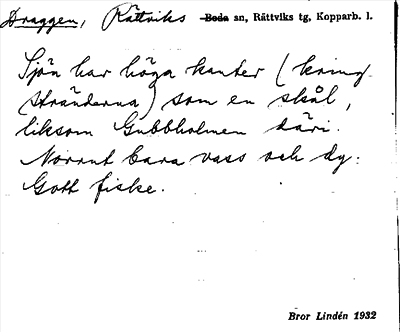 Draggen, Rättviks Boda sn, Rättviks tg, Kopparb. l.
Sjön har höga kanter (kring
stränderna) som en skål,
liksom Gubbholmen däri.
Norrut bara vass och dy.
Gott fiske.
Bror Lindén 1932